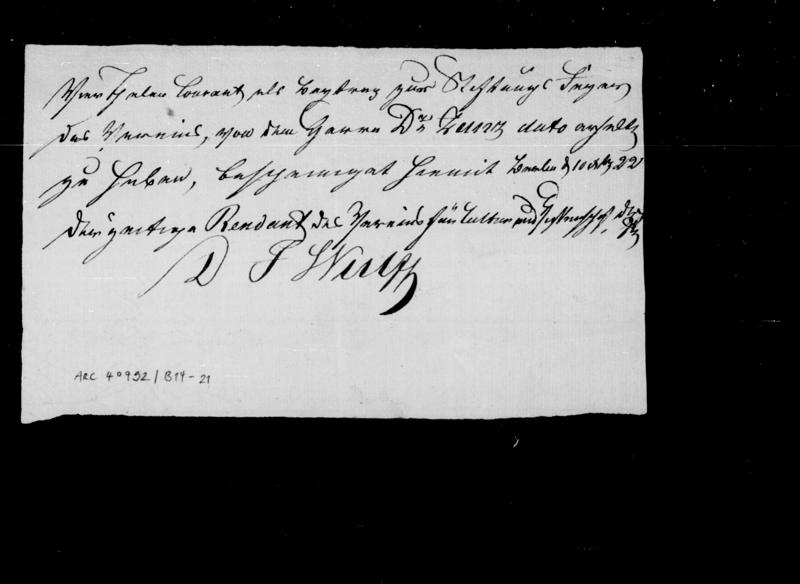 Vier Thaler Courant als Beytrag zur Stiftungs Feyer
des Vereins, von dem Herrn Dr Zunz dato erhalten
zu haben, bescheiniget hiermit Berlin d 10 22
derzeitige Rendant des Vereins für Cultur und Wissenschaft der
D
ARC 4º 792 / B14-21